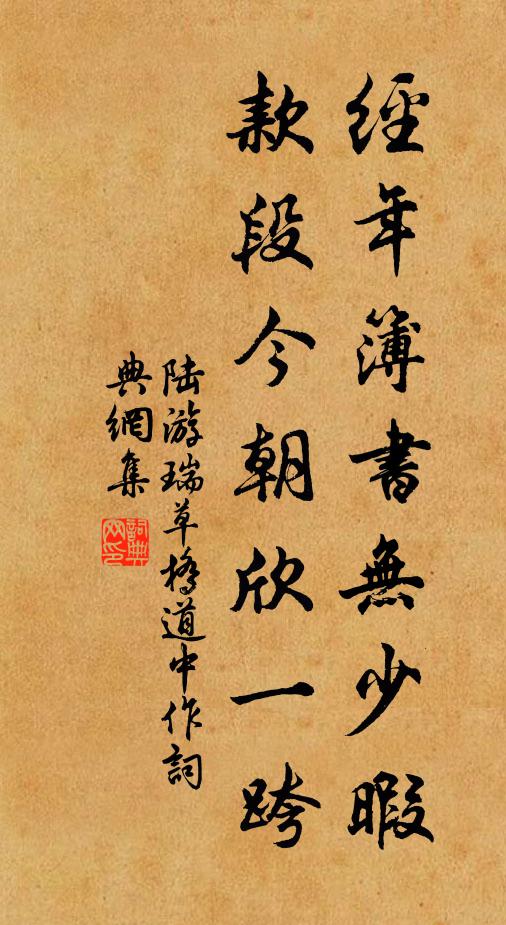 經年簿書無少暇
款段今朝欣一跨
陆游瑞草橋道中作詞
典網集
詞典网印